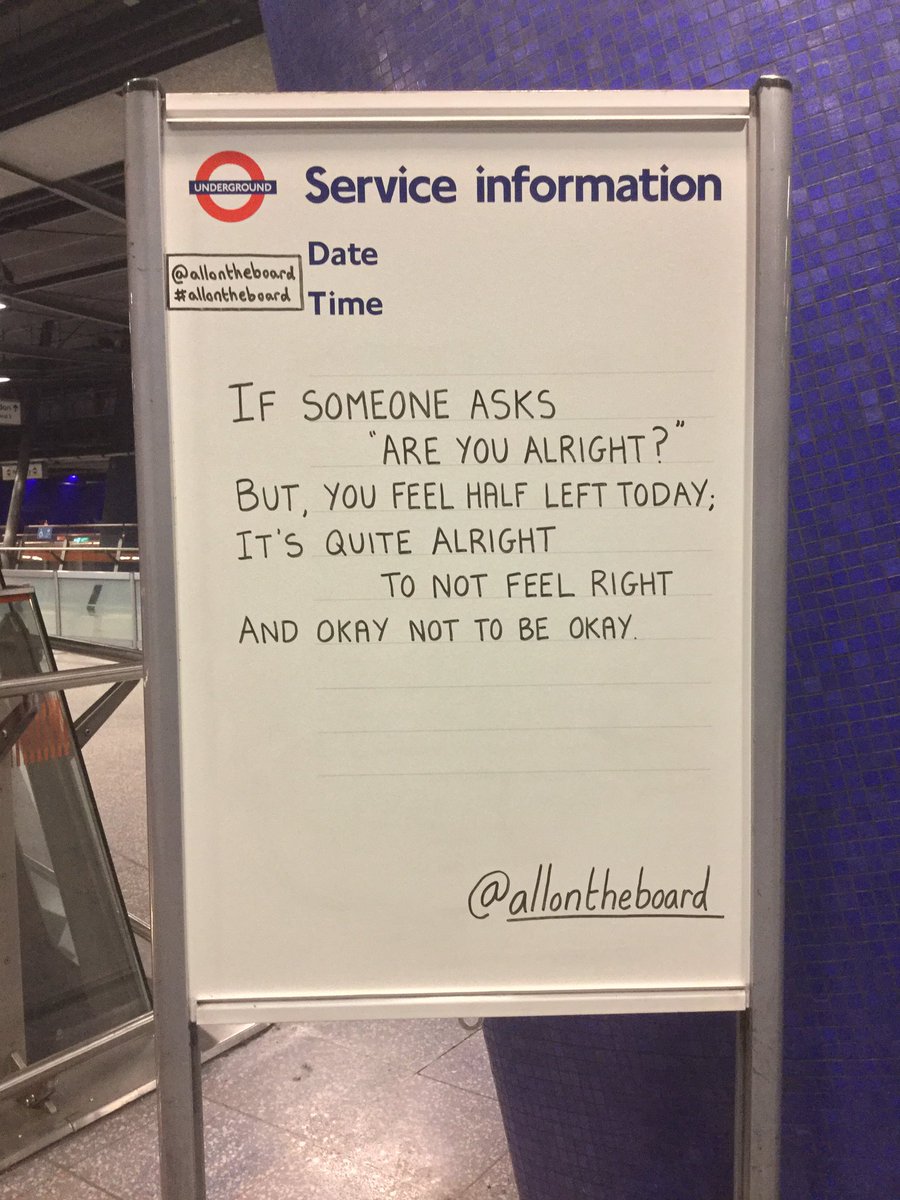 UNDERGROUND
Service information
Date
@allontheboard
#allontheboard
Time
IF SOMEONE ASKS
"ARE YOU ALRIGHT?"
BUT, YOU FEEL HALF LEFT TODAY;
IT'S QUITE ALRIGHT
TO NOT FEEL RIGHT
AND OKAY NOT TO BE OKAY.
@allontheboard